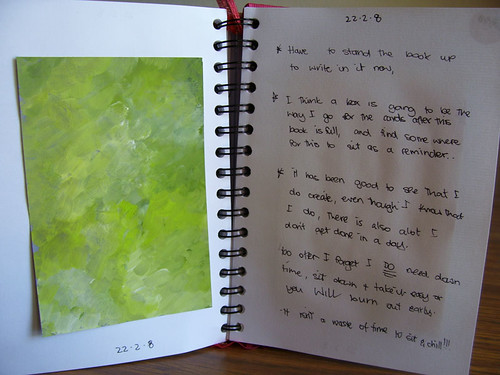 22.2.8
22.2.8
* Have to stand the book up
to write in it now,
* I think a box is going to be the
way I go for the cards after this
book is full, and find some where
for this to sit as a reminder..
* it has been good to see that I
do create, even though I know that
I do, there is also alot I
don't get done in a day.
too often I forget I DO need down
time, sit down & take it easy or
you will burn out early.
it isn't a waste of time to sit & chill!!!